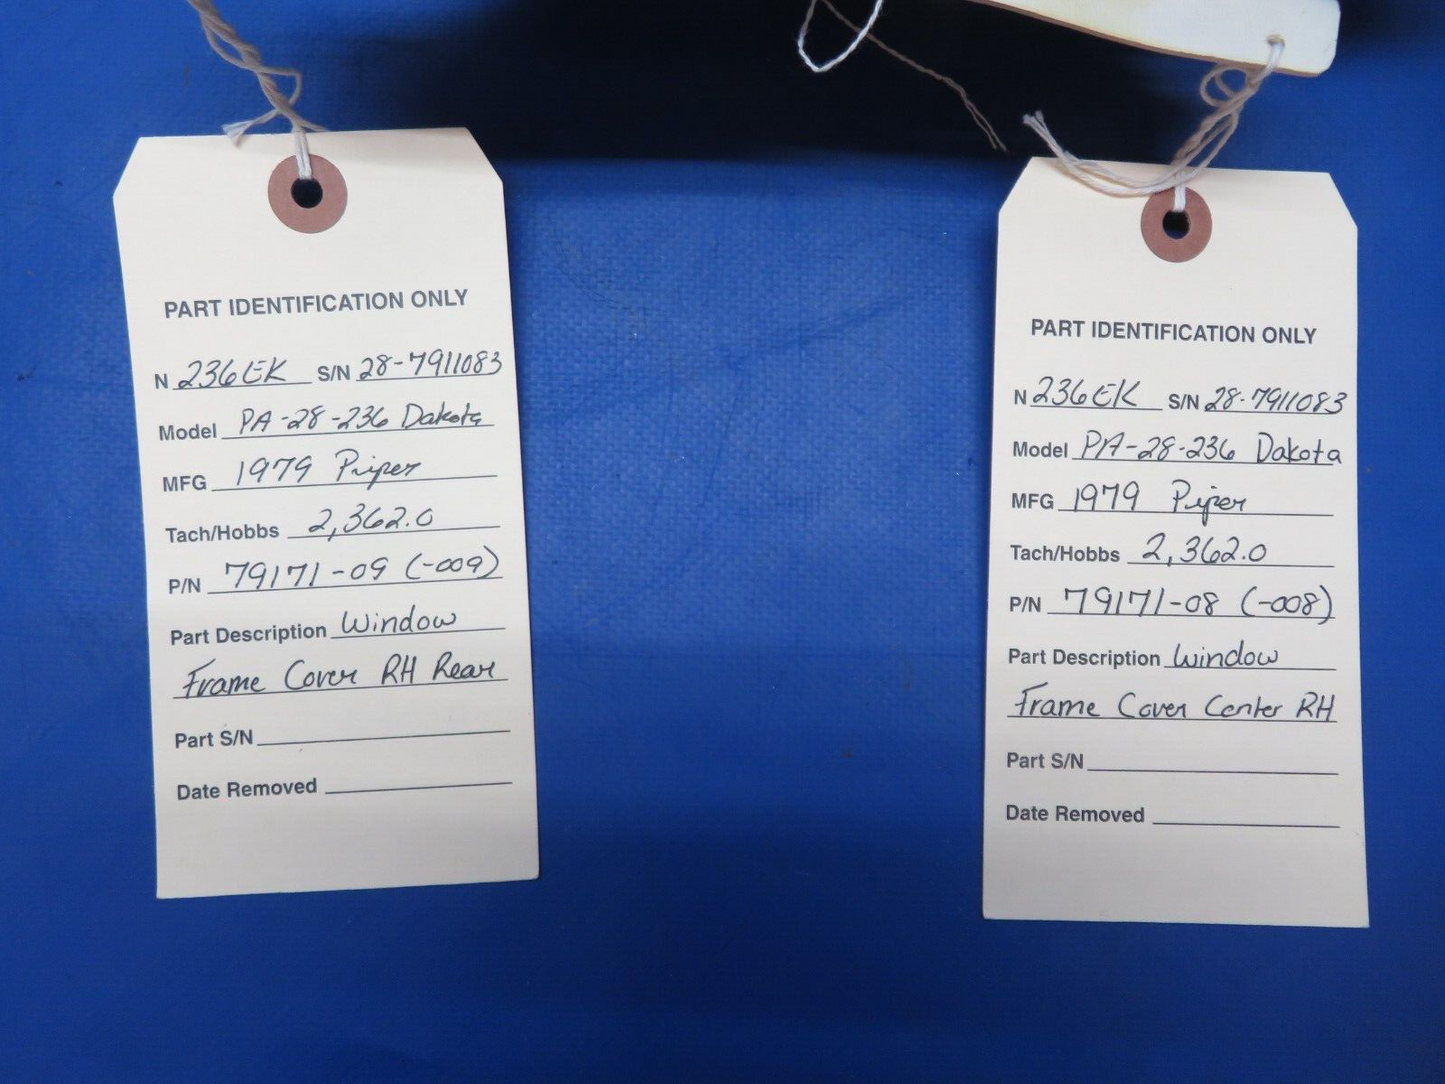 PART IDENTIFICATION ONLY
N 236EK S/N 28-7911083
Model PA-28-236 Dakota
MFG 1979 Piper
Tach/Hobbs 2,362.0
P/N 79171-09 (-009)
Part Description Window
Frame Cover RH Rear
Part S/N
Date Removed
PART IDENTIFICATION ONLY
N 236EK S/N 28-7911083
Model PA-28-236 Dakota
MFG 1979 Piper
Tach/Hobbs 2,362.0
P/N 79171-08 (-008)
Part Description Window
Frame Cover Center RH
Part S/N
Date Removed